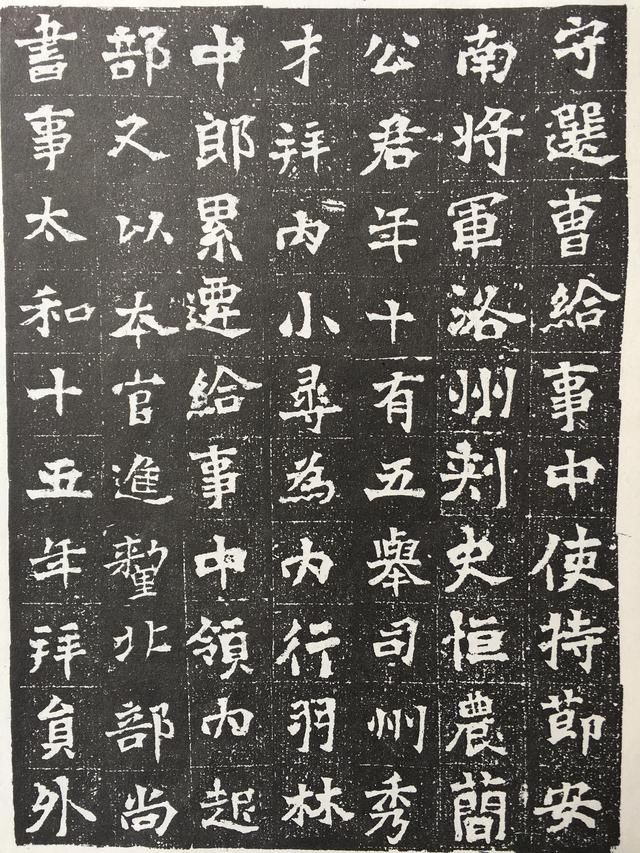 守選曹給事中使持節安
南將軍洛州刺史恒農簡
公君年十有五舉司州秀
才拜內小尋為內行羽林
中郎累遷給事中領內起
部又以本官進釐北部尚
書事太和十五年拜員外